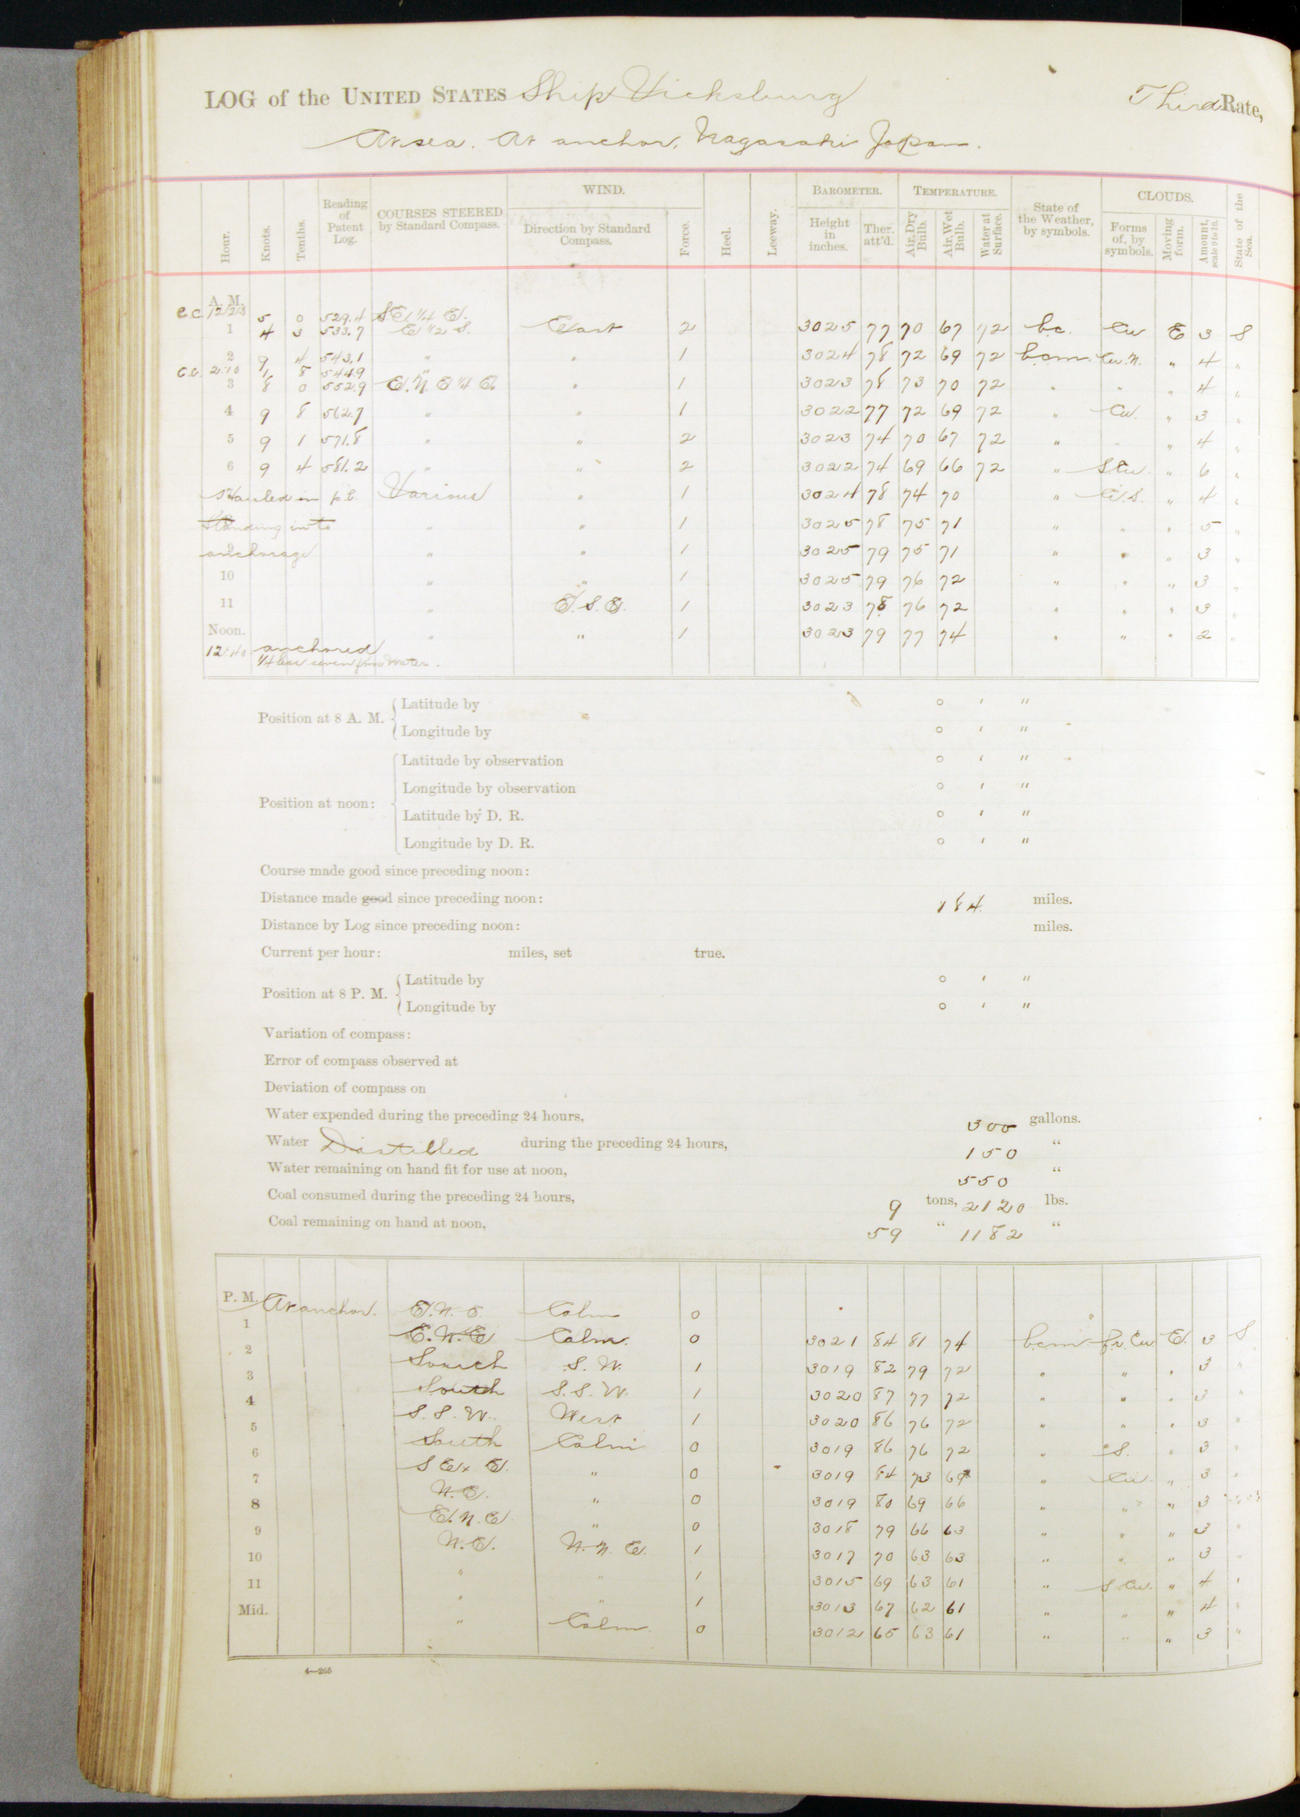 LOG of the UNITED STATES Ship Vicksburg Third Rate,
At sea. At anchor, Nagasaki Japan.
Hour. Knots. Tenths. Reading of Patent Log. COURSES STEERED by Standard Compass. WIND. Direction by Standard Compass. Force. Heel. Leeway. BAROMETER. Height in inches. Ther. att'd. TEMPERATURE. Air, Dry Bulb. Air, Wet Bulb. Water at Surface. State of the Weather, by symbols. CLOUDS. Forms of, by symbols. Moving form. Amount, scale 0 to 10. State of the Sea.
A. M.
C.C. 5 0 529.4 SE 1/4 E.
1 4 3 533.7 E 1/2 S. East 2 3025 77 70 67 72 bc. Cu E 3 S
2 9 4 543.1 " " 1 3024 78 72 69 72 bcm. Cu. N. " 4 "
C.C. 2:10 1 8 544.9
3 8 0 552.9 E. N E 1/4 E " 1 3023 78 73 70 72 " " " 4 "
4 9 8 562.7 " " 1 3022 77 72 69 72 " Cu. " 3 "
5 9 1 571.8 " " 2 3023 74 70 67 72 " " " 4 "
6 9 4 581.2 " " 2 3022 74 69 66 72 " S Cu. " 6 "
Hauled in p.l. Various " 1 3024 78 74 70 " Ci. S. " 4 "
Standing into " " 1 3025 78 75 71 " " " 5 "
anchorage " " 1 3025 79 75 71 " " " 3 "
10 " " 1 3025 79 76 72 " " " 3 "
11 " E. S. E. 1 3023 78 76 72 " " " 3 "
Noon. " " 1 3023 79 77 74 " " " 2 "
12:40 anchored
1/4 less seven fms water.
Position at 8 A. M. Latitude by ° ' "
Longitude by ° ' "
Position at noon: Latitude by observation ° ' "
Longitude by observation ° ' "
Latitude by D. R. ° ' "
Longitude by D. R. ° ' "
Course made good since preceding noon:
Distance made good since preceding noon: 184 miles.
Distance by Log since preceding noon: miles.
Current per hour: miles, set true.
Position at 8 P. M. Latitude by ° ' "
Longitude by ° ' "
Variation of compass:
Error of compass observed at
Deviation of compass on
Water expended during the preceding 24 hours, 300 gallons.
Water Distilled during the preceding 24 hours, 150 "
Water remaining on hand fit for use at noon, 550 "
Coal consumed during the preceding 24 hours, 9 tons, 2120 lbs.
Coal remaining on hand at noon, 59 " 1182 "
P. M. At anchor. E. N. E. Calm 0
1 E. N. E Calm. 0 3021 84 81 74 bcm fr. Cu E. 3 S
2 South S. W. 1 3019 82 79 72 " " " 3 "
3 South S. S. W. 1 3020 87 77 72 " " " 3 "
4 S. S. W. West 1 3020 86 76 72 " " " 3 "
5 South Calm 0 3019 86 76 72 " S. " 3 "
6 S E x E. " 0 3019 84 73 69 " Cu. " 3 "
7 N. E. " 0 3019 80 69 66 " " " 3 "
8 E. N. E " 0 3018 79 66 63 " " " 3 "
9 N. E. N. N. E. 1 3017 70 63 63 " " " 3 "
10 " " 1 3015 69 63 61 " S Cu. " 4 "
11 " " 1 3013 67 62 61 " " " 4 "
Mid. " Calm 0 3012 65 63 61 " " " 3 "
4—265